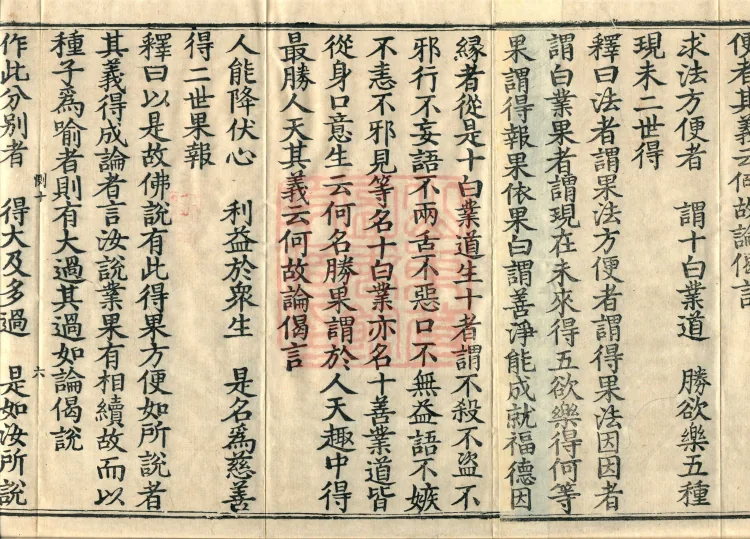 便者其義云何故論偈言
求法方便者　謂十白業道　勝欲樂五種
現未二世得
釋曰法者謂果法方便者謂得果法因因者
謂白業果者謂現在未來得五欲樂得何等
果謂得報果依果白謂善淨能成就福德因
緣者從是十白業道生十者謂不殺不盜不
邪行不妄語不兩舌不惡口不無益語不嫉
不恚不邪見等名十白業亦名十善業道皆
從身口意生云何名勝果謂於人天趣中得
最勝人天其義云何故論偈言
人能降伏心　利益於衆生　是名爲慈善
得二世果報
釋曰以是故佛說有此得果方便如所說者
其義得成論者言汝說業果有相續故而以
種子爲喻者則有大過其過如論偈說
惻十　六
作此分別者　得大及多過　是如汝所說